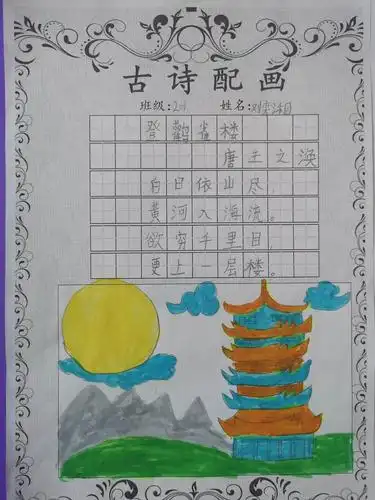 古诗配画
班级: 姓名:
登鹳雀楼
唐王之涣
白日依山尽,
黄河入海流。
欲穷千里目,
更上一层楼。